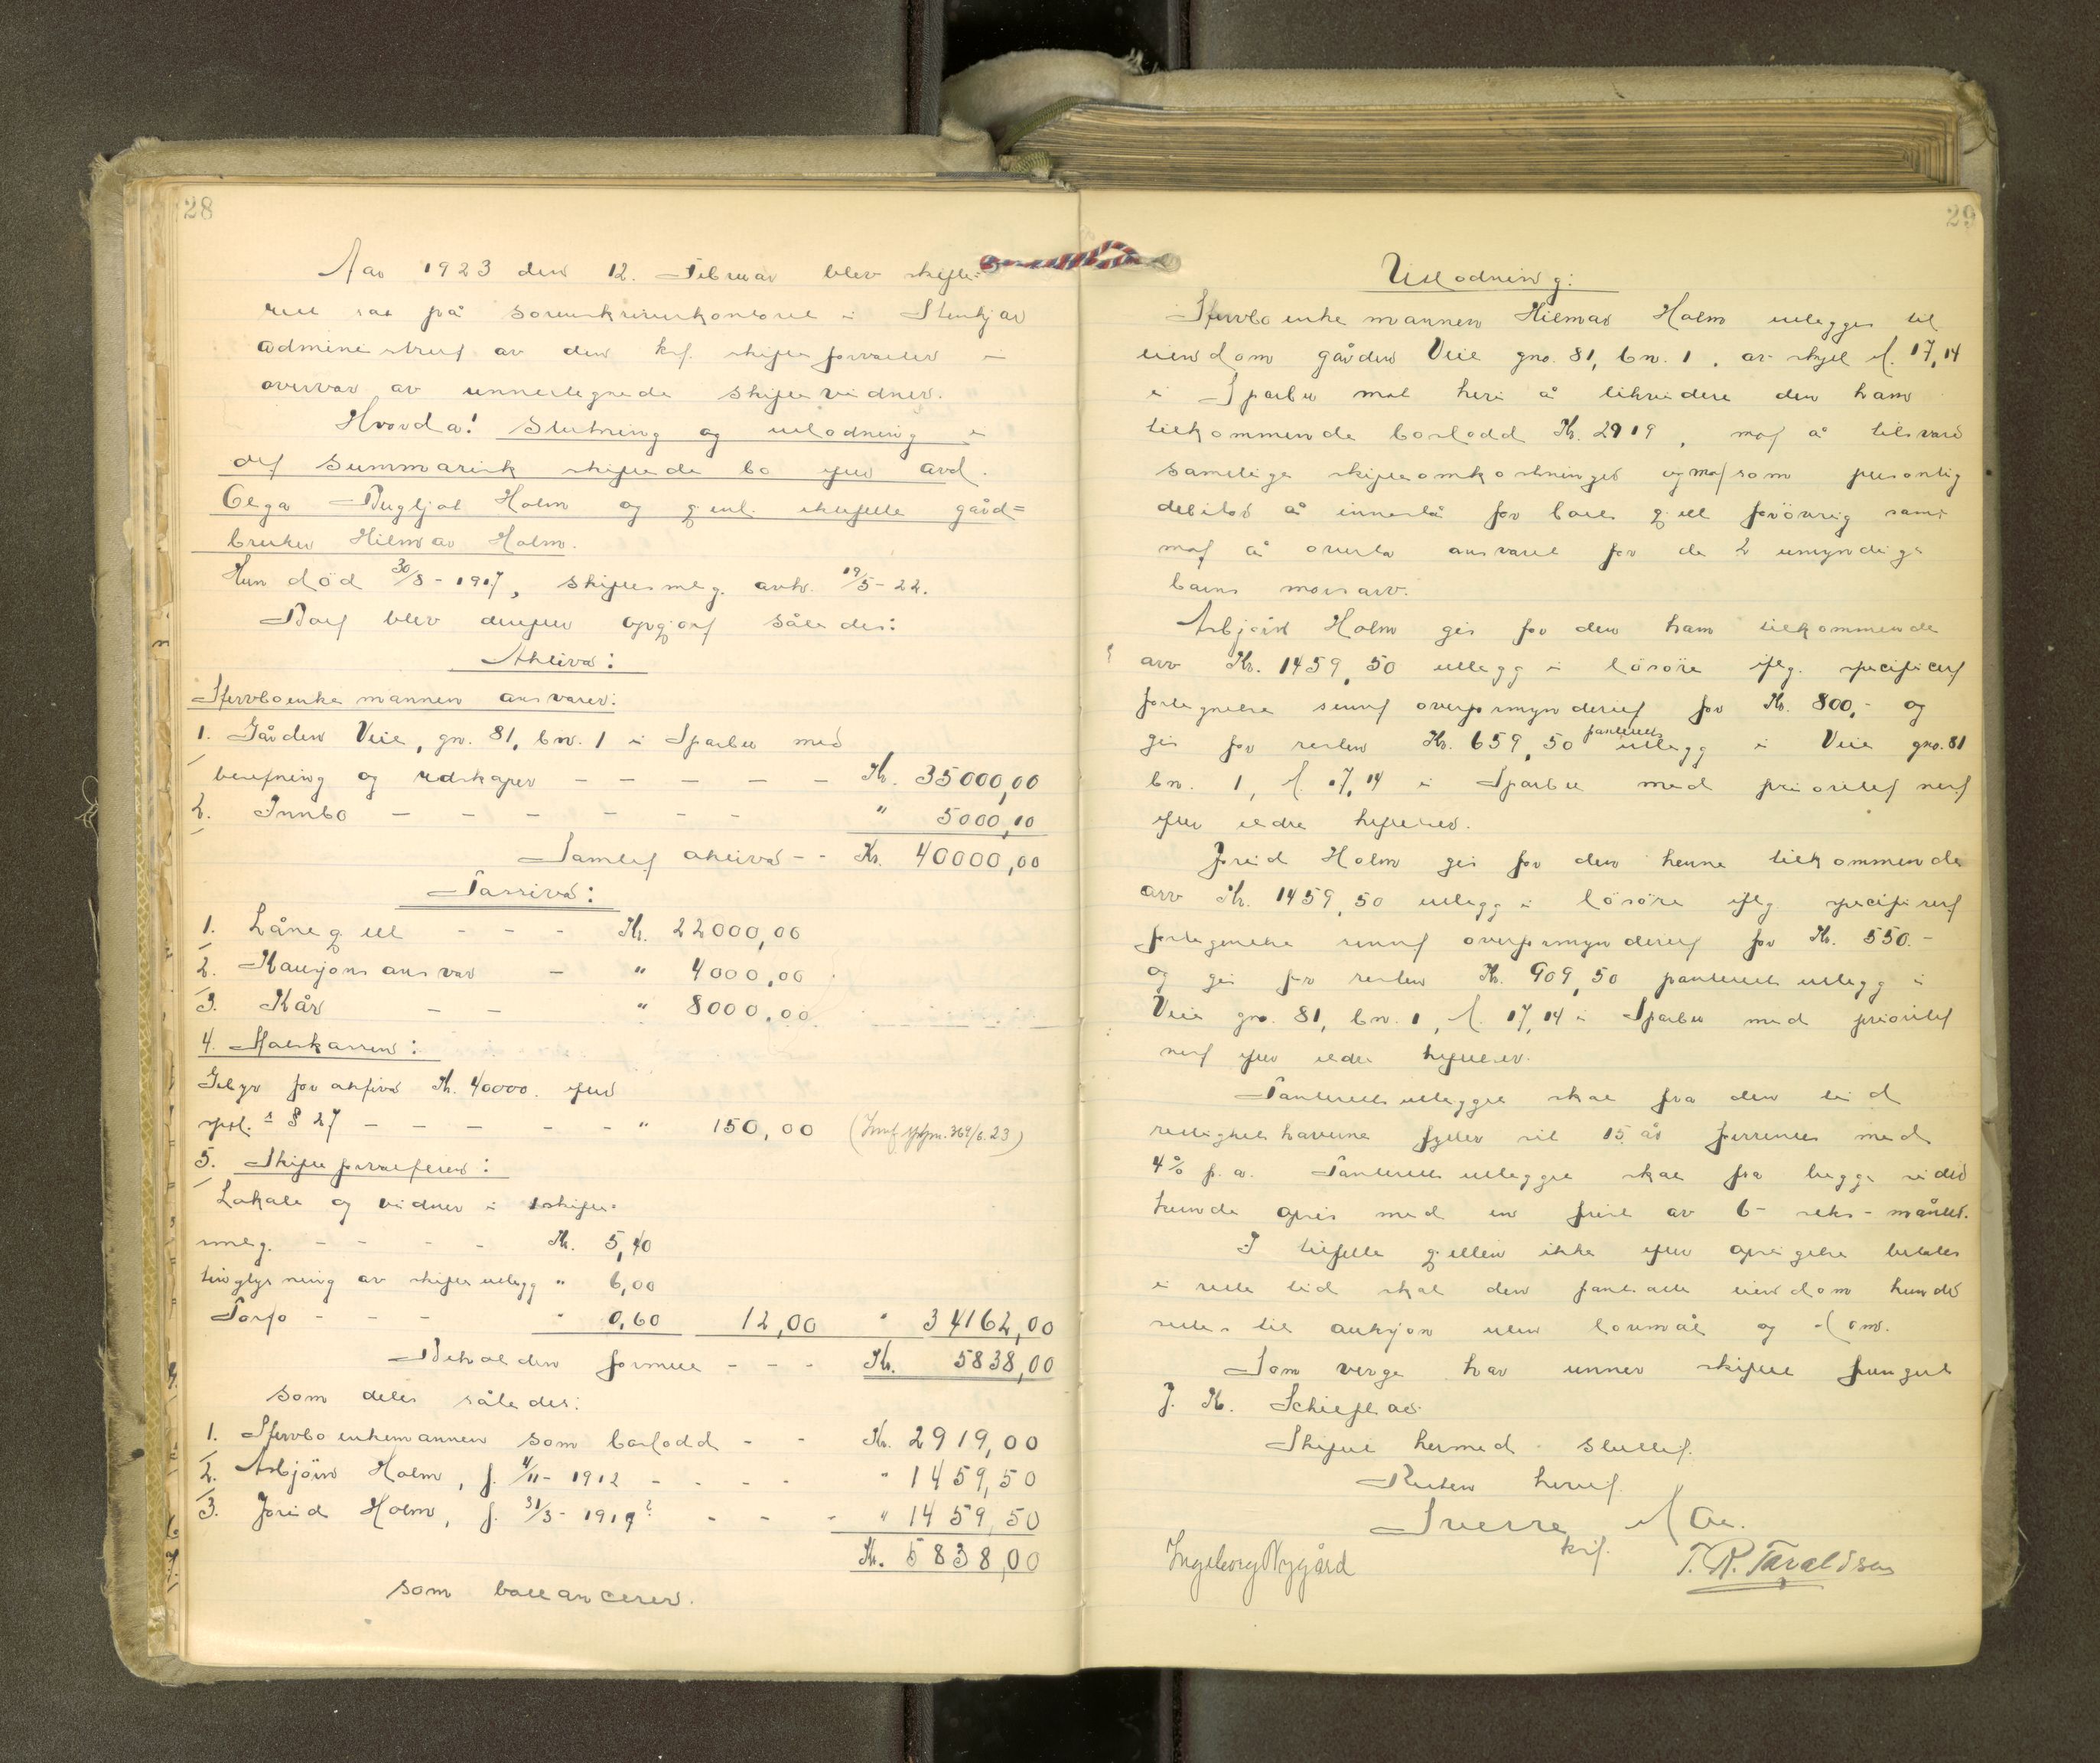 28
Aar 1923 den 12. Februar blev skifte-
rett sat på sorenskriverkontoret i Stenkjær
administrert av den kst. skifteforvalter i
overvær av unnertegnede skiftevidner.
Hvorda! Slutning og utlodning i
det summarisk skiftede bo efter avd.
Olga Bergljot Holm og gjenl. ektefelle gård=
bruker Hilmar Holm.
Hun död 30/8 - 1917, skiftesmlg. avh. 19/5 - 22.
Boet blev derefter opgjort således:
Aktiva:
Stervboenkemannen ansvarer:
1. Gården Veie, gn. 81, bn. 1 i Sparbu med
besetning og redskaper - - - - - Kr. 35000,00
2. Innbo - - - - - - " 5000,00
Samlet aktiva - - Kr. 40000,00
Passiva:
1. Lånegjell - - - Kr. 22000,00
2. Kausjonsansvar - " 4000,00
3. Kår - - " 8000,00
4. Statskassen:
Gebyr for aktiva Kr. 40000. efter
sptl.s § 27 - - - - - " 150,00 (Innt. 364/6.23)
5. Skifteforvalteren:
Lokale og vidner i 1 skifte-
smlg. - - - - Kr. 5,40
tinglysning av skifteutlegg " 6,00
Porto - - - " 0,60 12,00 " 34162,00
Beholden formue - - - Kr. 5838,00
som deles således:
1. Stervboenkemannen som boslodd - - Kr. 2919,00
2. Asbjörn Holm, f. 4/11 - 1912 - - - - " 1459,50
3. Jorid Holm, f. 31/3 - 1917? - - - " 1459,50
Kr. 5838,00
som ballancerer.
29
Utlodning:
Stervboenkemannen Hilmar Holm utlegges til
eiendom gården Veie gno. 81, bn. 1, av skyld M. 17,14
i Sparbu mot heri å likvidere den ham
tilkommende boslodd Kr. 2919, mot å tilsvare
samtlige skifteomkostninger og mot som personlig
debitor å innestå for boets gjell forövrig samt
mot å overta ansvaret for de 2 umyndige
barns morsarv.
Asbjörn Holm gis for den ham tilkommende
arv Kr. 1459,50 utlegg i lösöre iflg. specificert
fortegnelse sennt overformynderiet for Kr. 800,- og
gis for resten Kr. 659,50 panteretts utlegg i Veie gno. 81
bn. 1, M. 17,14 i Sparbu med prioritet nest
efter eldre heftelser.
Jorid Holm gis for den henne tilkommende
arv Kr. 1459,50 utlegg i lösöre iflg specificert
fortegnelse sennt overformynderiet for Kr. 550.-
og gis for resten Kr. 909,50 panteretts utlegg i
Veie gno. 81, bn. 1, M. 17,14 i Sparbu med prioritet
nest efter eldre heftelser.
Panteretts utlegget skal fra den tid
rettighetshaverne fyller sit 15. år forrentes med
4% p.a. Panteretts utlegget skal fra begge sider
kunde opsies med en frist av 6 - seks - måneder.
I tilfelle gjellen ikke efter opsigelse betales
i rette tid skal den pantsatte eiendom kunde
settes til auksjon uten lovmål og dom.
Som verge har unner skiftet fungert
J. K. Schieflo.
Skiftet hermed sluttet.
Retten hevet.
Sverre Moe.
kst.
Ingeborg Nygård
T. R. Taraldsen